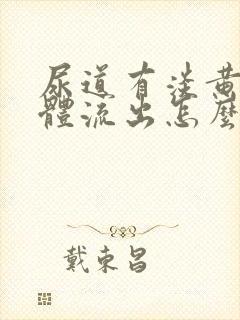 尿道有淡黃
體流出怎麼
戴東昌